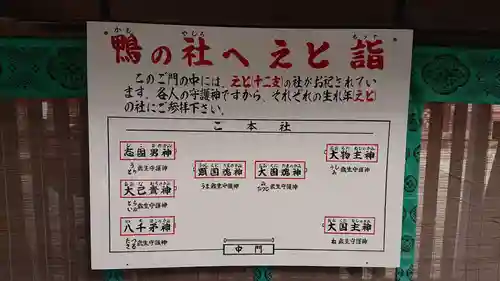 鴨の社へえと詣
かも やしろ もうで
このご門の中には、えと(十二支)の社がお祀されてい
ます。各人の守護神ですから、それぞれの生れ年(えと)
の社にご参拝下さい。
ご本社
志固男神
うし
いのしし歳生守護神
大己貴神
とら
いぬ歳生守護神
八千矛神
うさぎ
とり歳生守護神
顕国魂神
うま歳生守護神
大国魂神
み
ひつじ歳生守護神
大物主神
大国主神
ね歳生守護神
中門